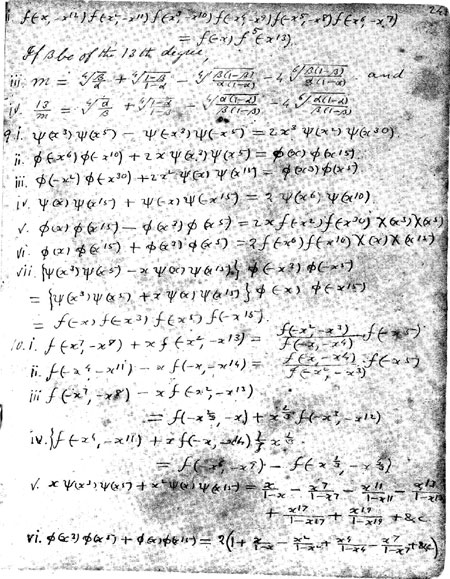 f(-x, -x^12) f(-x^2, -x^11) f(-x^3, -x^10) f(-x^4, -x^9) f(-x^5, -x^8) f(-x^6, -x^7)
= f(-x) f^5(-x^13).
If β be of the 13th degree,
iii. m = ∜(β/α) + ∜((1-β)/(1-α)) - ∜(β(1-β)/(α(1-α))) - 4 ∜(β(1-β)/(α(1-α))) and
iv. 13/m = ∜(α/β) + ∜((1-α)/(1-β)) - ∜(α(1-α)/(β(1-β))) - 4 ∜(α(1-α)/(β(1-β)))
9. i. ψ(x^3) ψ(x^5) - ψ(-x^3) ψ(-x^5) = 2x^3 ψ(x^2) ψ(x^30).
ii. φ(-x^6) φ(-x^10) + 2x ψ(x^3) ψ(x^5) = φ(x) φ(x^15).
iii. φ(-x^2) φ(-x^30) + 2x^2 ψ(x) ψ(x^15) = φ(x^3) φ(x^5).
iv. ψ(x) ψ(x^15) + ψ(-x) ψ(-x^15) = 2 ψ(x^6) ψ(x^10)
v. φ(x) φ(x^15) - φ(x^3) φ(x^5) = 2x f(-x^2) f(-x^30) χ(x^3) χ(x^5)
vi. φ(x) φ(x^15) + φ(x^3) φ(x^5) = 2 f(-x^6) f(-x^10) χ(x) χ(x^15)
vii. {ψ(x^3) ψ(x^5) - x ψ(x) ψ(x^15)} φ(-x^3) φ(-x^5)
= {ψ(x^3) ψ(x^5) + x ψ(x) ψ(x^15)} φ(-x) φ(-x^15)
= f(-x) f(-x^3) f(-x^5) f(-x^15).
10. i. f(-x^7, -x^8) + x f(-x^2, -x^13) = f(-x^2, -x^3)/f(-x, -x^4) f(-x^5)
ii. f(-x^4, -x^11) - x f(-x, -x^14) = f(-x, -x^4)/f(-x^2, -x^3) f(-x^5)
iii f(-x^7, -x^8) - x f(-x^2, -x^13)
= f(-x^⅔, -x) + x^⅔ f(-x^3, -x^12)
iv. {f(-x^4, -x^11) + x f(-x, -x^14)} x^⅓
= f(-x^6, -x^9) - f(-x^⅓, -x^4/3)
v. x ψ(x^3) ψ(x^5) + x^2 ψ(x) ψ(x^15) = x/(1-x) - x^7/(1-x^7) - x^11/(1-x^11) - x^13/(1-x^13)
+ x^17/(1-x^17) + x^19/(1-x^19) + &c
vi. φ(x^3) φ(x^5) + φ(x) φ(x^15) = 2(1 + x/(1-x) - x^2/(1-x^2) + x^4/(1-x^4) - x^7/(1-x^7) + &c)